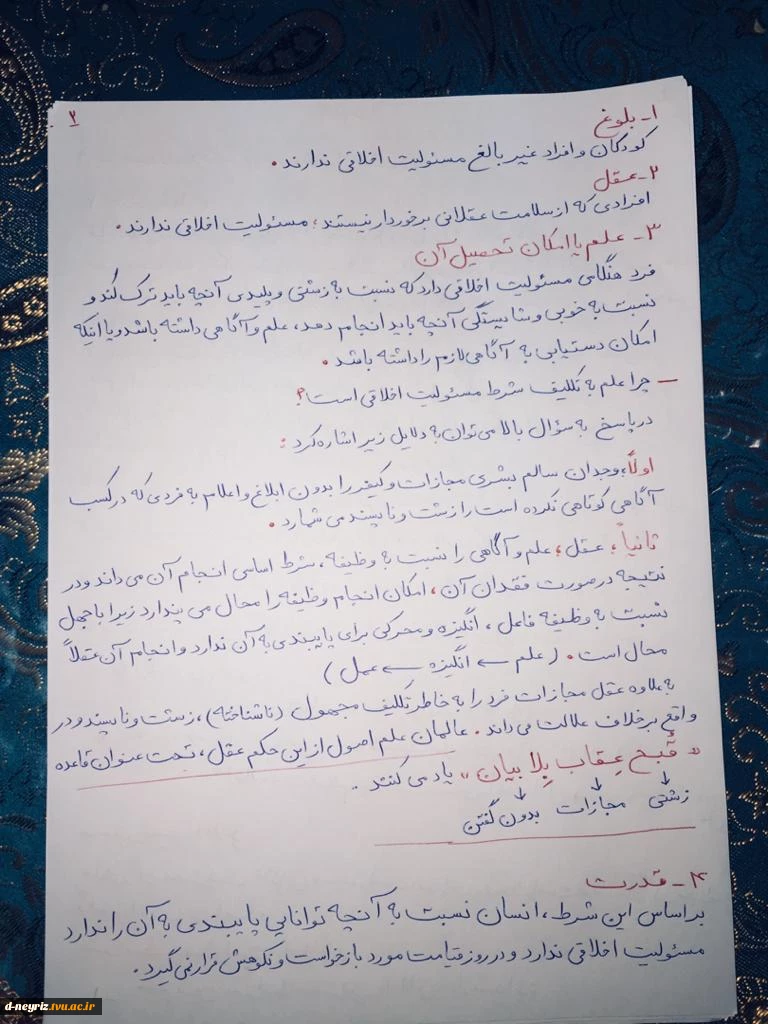 ۲
۱- بلوغ
کودکان و افراد غیر بالغ مسئولیت اخلاقی ندارند.
۲- عقل
افرادی که از سلامت عقلانی برخوردار نیستند، مسئولیت اخلاقی ندارند.
۳- علم یا امکان تحصیل آن
فرد هنگامی مسئولیت اخلاقی دارد که نسبت به زشتی و پلیدی آنچه باید ترک کند و
نسبت به خوبی و شایستگی آنچه باید انجام دهد، علم و آگاهی داشته باشد و یا اینکه
امکان دستیابی به آگاهی لازم را داشته باشد.
– چرا علم به تکلیف شرط مسئولیت اخلاقی است؟
در پاسخ به سؤال بالا می‌توان به دلایل زیر اشاره کرد:
اولاً؛ وجدان سالم بشری مجازات و کیفر را بدون ابلاغ و اعلام به فردی که در کسب
آگاهی کوتاهی نکرده است را زشت و ناپسند می شمارد.
ثانیاً؛ عقل، علم و آگاهی را نسبت به وظیفه، شرط اساسی انجام آن می داند و در
نتیجه در صورت فقدان آن، امکان انجام وظیفه را محال می پندارد زیرا با جهل
نسبت به وظیفه فاعل، انگیزه و محرکی برای پایبندی به آن ندارد و انجام آن عقلاً
محال است. (علم ← انگیزه ← عمل)
به علاوه عقل مجازات فرد را به خاطر تکلیف مجهول (ناشناخته)، زشت و ناپسند و در
واقع برخلاف عدالت می داند. عالمان علم اصول از این حکم عقل، تحت عنوان قاعده
«قُبح عِقاب بِلا بیان» یاد می کنند.
↓ ↓ ↓
زشتی مجازات بدون گفتن
۴- قدرت
بر اساس این شرط، انسان نسبت به آنچه توانایی پایبندی به آن را ندارد
مسئولیت اخلاقی ندارد و در روز قیامت مورد بازخواست و نکوهش قرار نمی گیرد.
d-neyriz.tvu.ac.ir